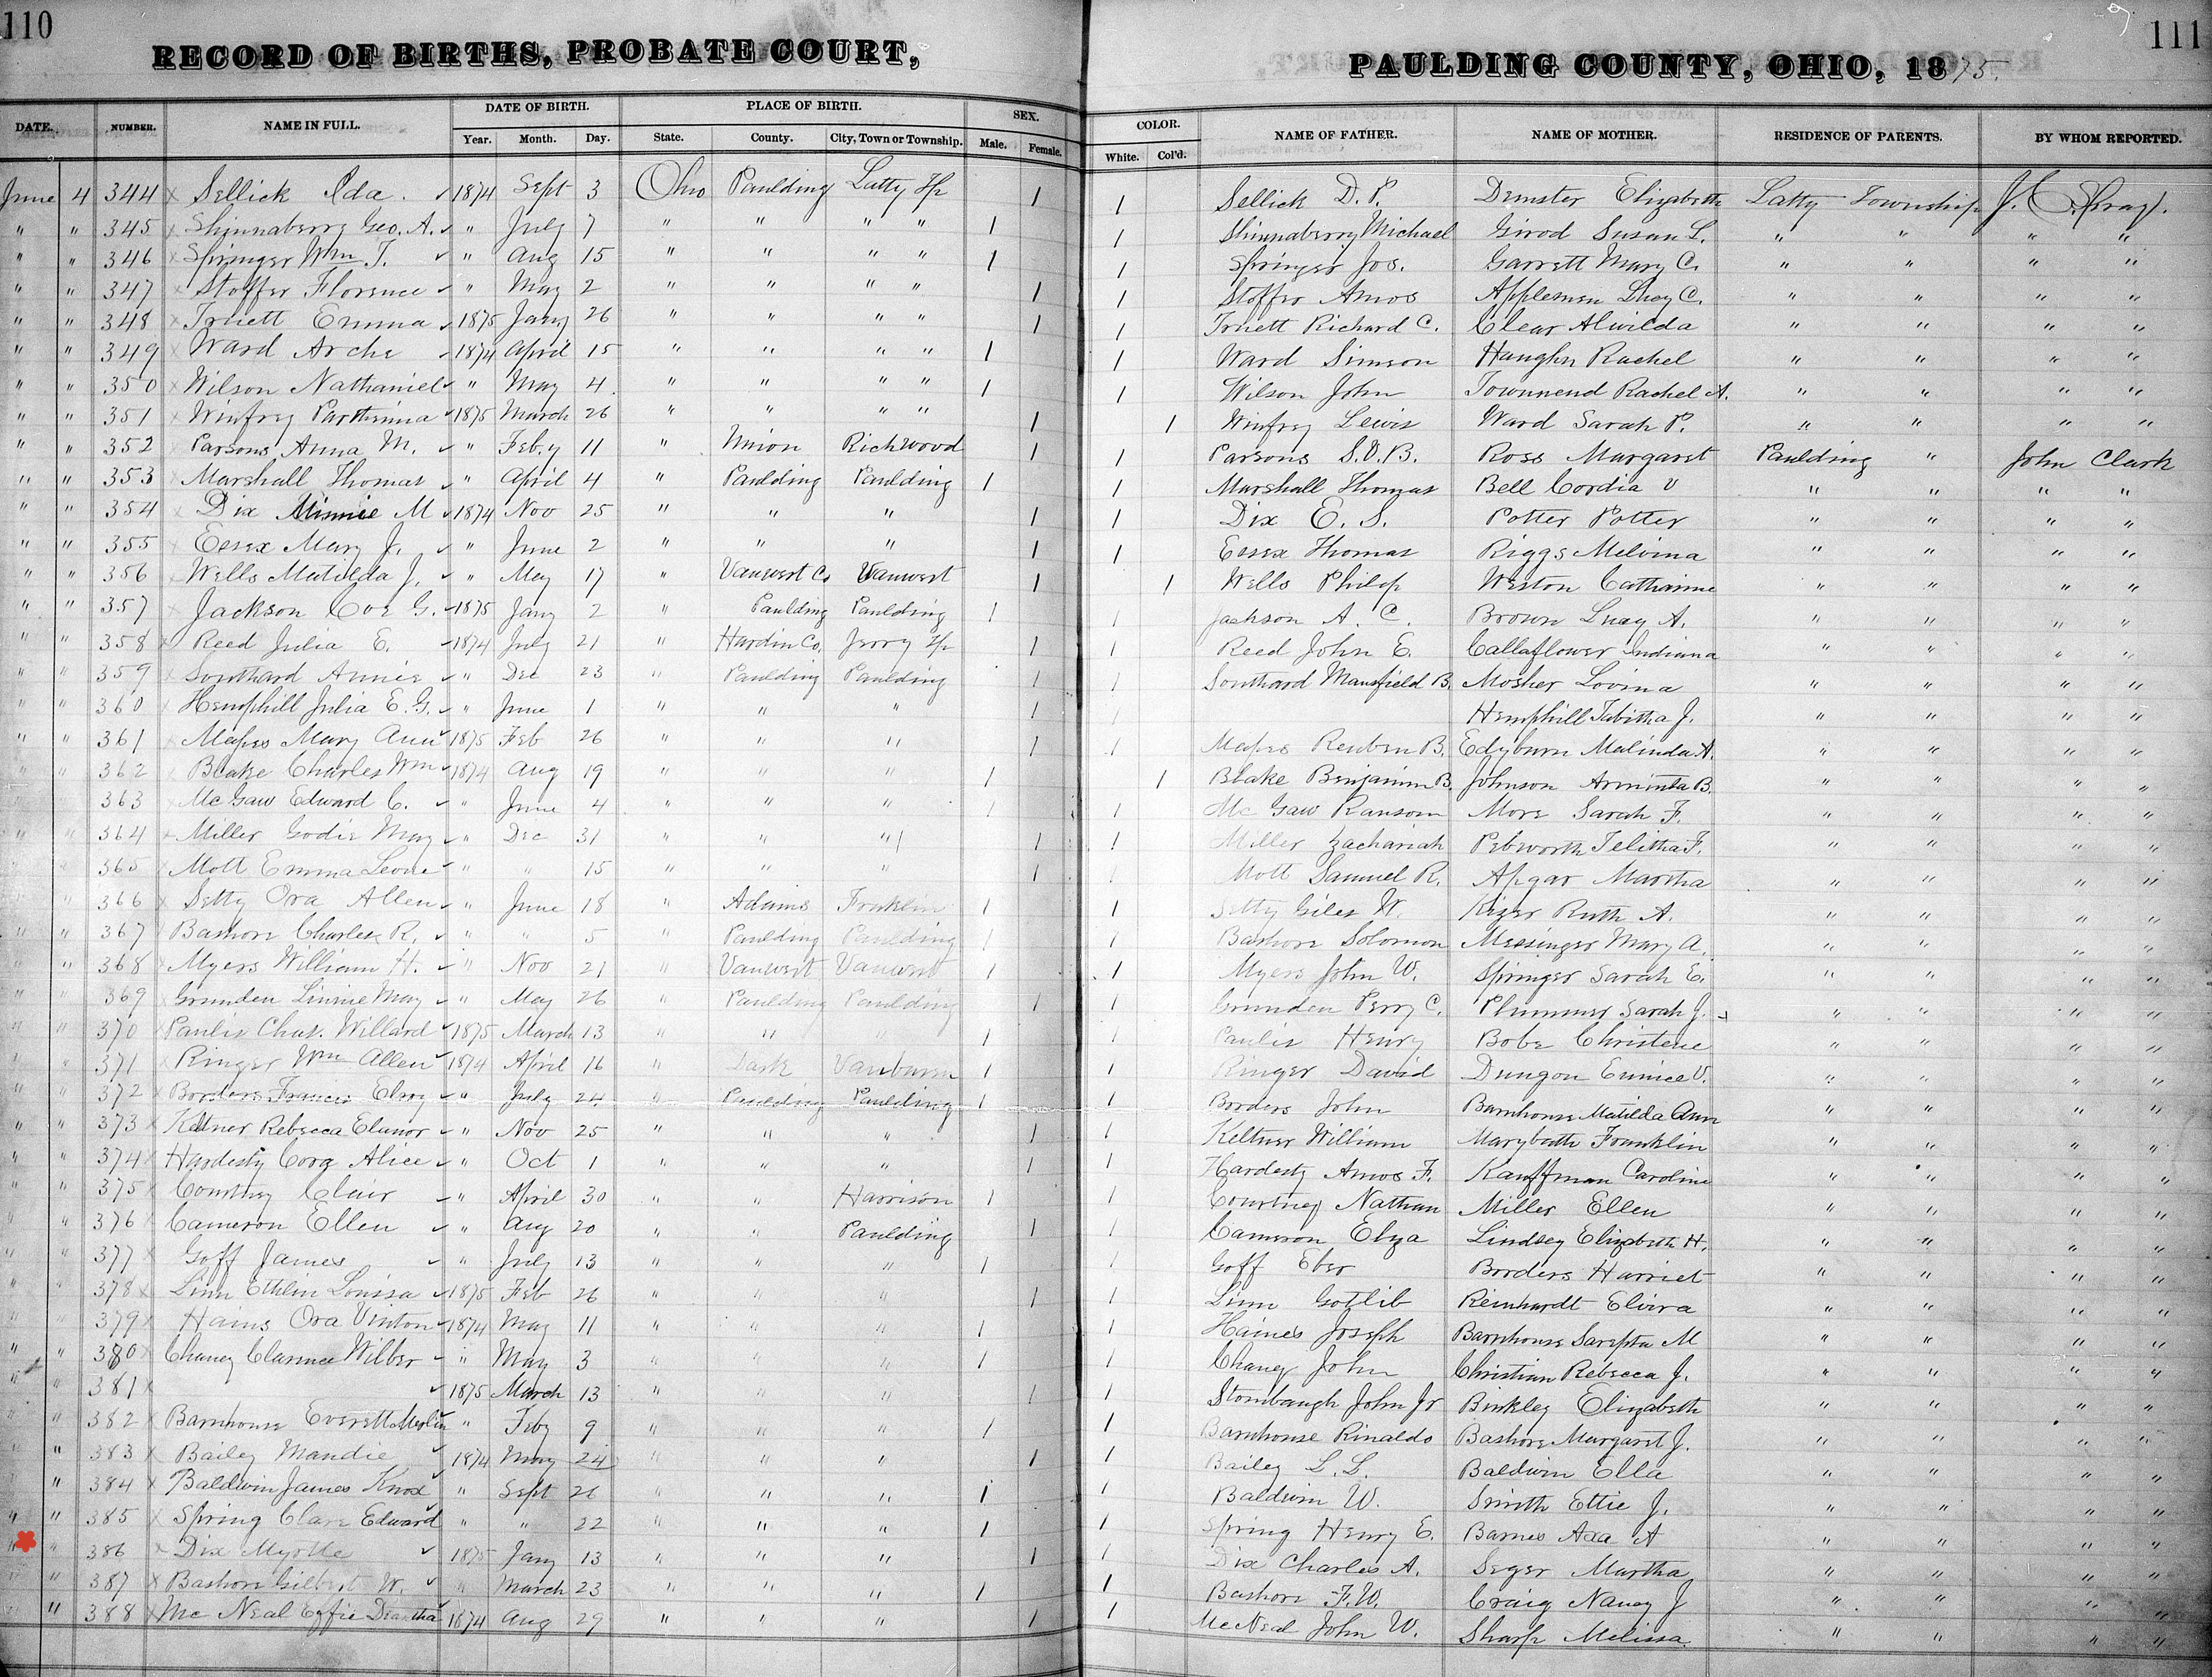 110
111
RECORD OF BIRTHS, PROBATE COURT, PAULDING COUNTY, OHIO, 1875.
DATE. NUMBER. NAME IN FULL. DATE OF BIRTH. PLACE OF BIRTH. SEX. COLOR. NAME OF FATHER. NAME OF MOTHER. RESIDENCE OF PARENTS. BY WHOM REPORTED.
Year. Month. Day. State. County. City, Town or Township. Male. Female. White. Col'd.
June 4 344 x Sellick Ida. ✓ 1874 Sept 3 Ohio Paulding Latty Tp 1 1 Sellick D. P. Demster Elizabeth Latty Township J. C.
" " 345 x Shinnaberry Geo. A. ✓ " July 7 " " " " 1 1 Shinnaberry Michael Girod Susan L. " " " "
" " 346 x Springer Wm T. ✓ " Aug 15 " " " " 1 1 Springer Jos. Garrett Mary C. " " " "
" " 347 x Stoffer Florence ✓ " May 2 " " " " 1 1 Stoffer Amos Applemen Lucy C. " " " "
" " 348 x Truett Emma ✓ 1875 Jany 26 " " " " 1 1 Truett Richard C. Clear Alwilda " " " "
" " 349 x Ward Arche ✓ 1874 April 15 " " " " 1 1 Ward Simson Haughn Rachel " " " "
" " 350 x Wilson Nathaniel ✓ " May 4 " " " " 1 1 Wilson John Townnend Rachel A. " " " "
" " 351 x Winfrey Parthenna ✓ 1875 March 26 " " " " 1 1 Winfrey Lewis Ward Sarah P. " " " "
" " 352 x Parsons Anna M. ✓ " Feb.y 11 " Union Richwood 1 1 Parsons S.D.B. Ross Margaret Paulding " John Clark
" " 353 x Marshall Thomas ✓ " April 4 " Paulding Paulding 1 1 Marshall Thomas Bell Cordia V " " " "
" " 354 x Dix Minnie M ✓ 1874 Nov 25 " " " 1 1 Dix E. S. Potter Potter " " " "
" " 355 x Essex Mary J. ✓ " June 2 " " " 1 1 Essex Thomas Riggs Melvina " " " "
" " 356 x Wells Matilda J. ✓ " May 17 " Vanwert Co Vanwert 1 1 Wells Philop Weston Catharine " " " "
" " 357 x Jackson Coe G. ✓ 1875 Jany 2 " Paulding Paulding 1 1 Jackson A. C. Brown Lucy A. " " " "
" " 358 x Reed Julia E. ✓ 1874 July 21 " Hardin Co. Tp 1 1 Reed John E. Callaflower Indiana " " " "
" " 359 x Southard Annie ✓ " Dec 23 " Paulding Paulding 1 1 Southard Mansfield B. Mosher Lovina " " " "
" " 360 x Hemphill Julia E. G. ✓ " June 1 " " " 1 1 Hemphill Tabitha J. " " " "
" " 361 x Mapes Mary Ann ✓ 1875 Feb 26 " " " 1 1 Mapes Reuben B. Edyburn Malinda A. " " " "
" " 362 x Blake Charles Wm ✓ 1874 Aug 19 " " " 1 1 Blake Benjamin B. Johnson Arminta B. " " " "
" " 363 x Mc Gaw Edward C. ✓ " June 4 " " " 1 1 Mc Gaw Ransom More Sarah F. " " " "
" " 364 x Miller Godie May ✓ " Dec 31 " " " 1 1 Miller Zachariah Pebworth Telitha F. " " " "
" " 365 x Mott Emma Leone ✓ " " 15 " " " 1 1 Mott Samuel R. Apgar Martha " " " "
" " 366 x Setty Ora Allen ✓ " June 18 " Adams Franklin 1 1 Setty Giles W. Kizer Ruth A. " " " "
" " 367 x Bashore Charles R. ✓ " " 5 " Paulding Paulding 1 1 Bashore Solomon Messinger Mary A. " " " "
" " 368 x Myers William H. ✓ " Nov 21 " Vanwert Vanwert 1 1 Myers John W. Springer Sarah E. " " " "
" " 369 Grunden Linnie May ✓ " May 26 " Paulding Paulding 1 1 Grunden Perry C. Plummer Sarah J. " " " "
" " 370 x Paulis Chas. Willard ✓ 1875 March 13 " " " 1 1 Paulis Henry Bobe Christene " " " "
" " 371 x Ringer Wm Allen ✓ 1874 April 16 " Dark Vanburen 1 1 Ringer David Dungon Eunice V. " " " "
" " 372 x Borders Francis Elroy ✓ " July 24 " Paulding Paulding 1 1 Borders John Barnhouse Matilda Ann " " " "
" " 373 x Keltner Rebecca Elanor ✓ " Nov 25 " " " 1 1 Keltner William Marybath Franklin " " " "
" " 374 x Hardesty Cora Alice ✓ " Oct 1 " " " 1 1 Hardesty Amos F. Kauffman Caroline " " " "
" " 375 x Courtney Clair ✓ " April 30 " " Harrison 1 1 Courtney Nathan Miller Ellen " " " "
" " 376 x Cameron Ellen ✓ " Aug 20 " " Paulding 1 1 Cameron Elza Lindsey Elizabeth H. " " " "
" " 377 x Goff James ✓ " July 13 " " " 1 1 Goff Eber Borders Harriet " " " "
" " 378 x Linn Ethlin Louisa ✓ 1875 Feb 26 " " " 1 1 Linn Gotlib Reinhardt Elvira " " " "
" " 379 x Hains Ora Vinton ✓ 1874 May 11 " " " 1 1 Haines Joseph Barnhouse Sarepta M " " " "
" " 380 x Chaney Clarence Wilber ✓ " May 3 " " " 1 1 Chaney John Christian Rebecca J. " " " "
" " 381 x ✓ 1875 March 13 " " " 1 1 Stombaugh John Jr Binkley Elizabeth " " " "
" " 382 x Barnhouse Everett Merlin ✓ " Feby 9 " " " 1 1 Barnhouse Rinaldo Bashore Margaret J. " " " "
" " 383 x Bailey Mandie ✓ 1874 May 24 " " " 1 1 Bailey L. L. Baldwin Ella " " " "
" " 384 x Baldwin James Knox ✓ " Sept 26 " " " 1 1 Baldwin W. Smith Ettie J. " " " "
" " 385 x Spring Clare Edward ✓ " " 22 " " " 1 1 Spring Henry E. Barnes Axa A " " " "
" " 386 x Dix Myrtle ✓ 1875 Jany 13 " " " 1 1 Dix Charles A. Seger Martha " " " "
" " 387 x Bashore Gilbert W. ✓ " March 23 " " " 1 1 Bashore F. W. Craig Nancy J " " " "
" " 388 x Mc Neal Effie Deartha ✓ 1874 Aug 29 " " " 1 1 McNeal John W. Sharp Melissa " " " "